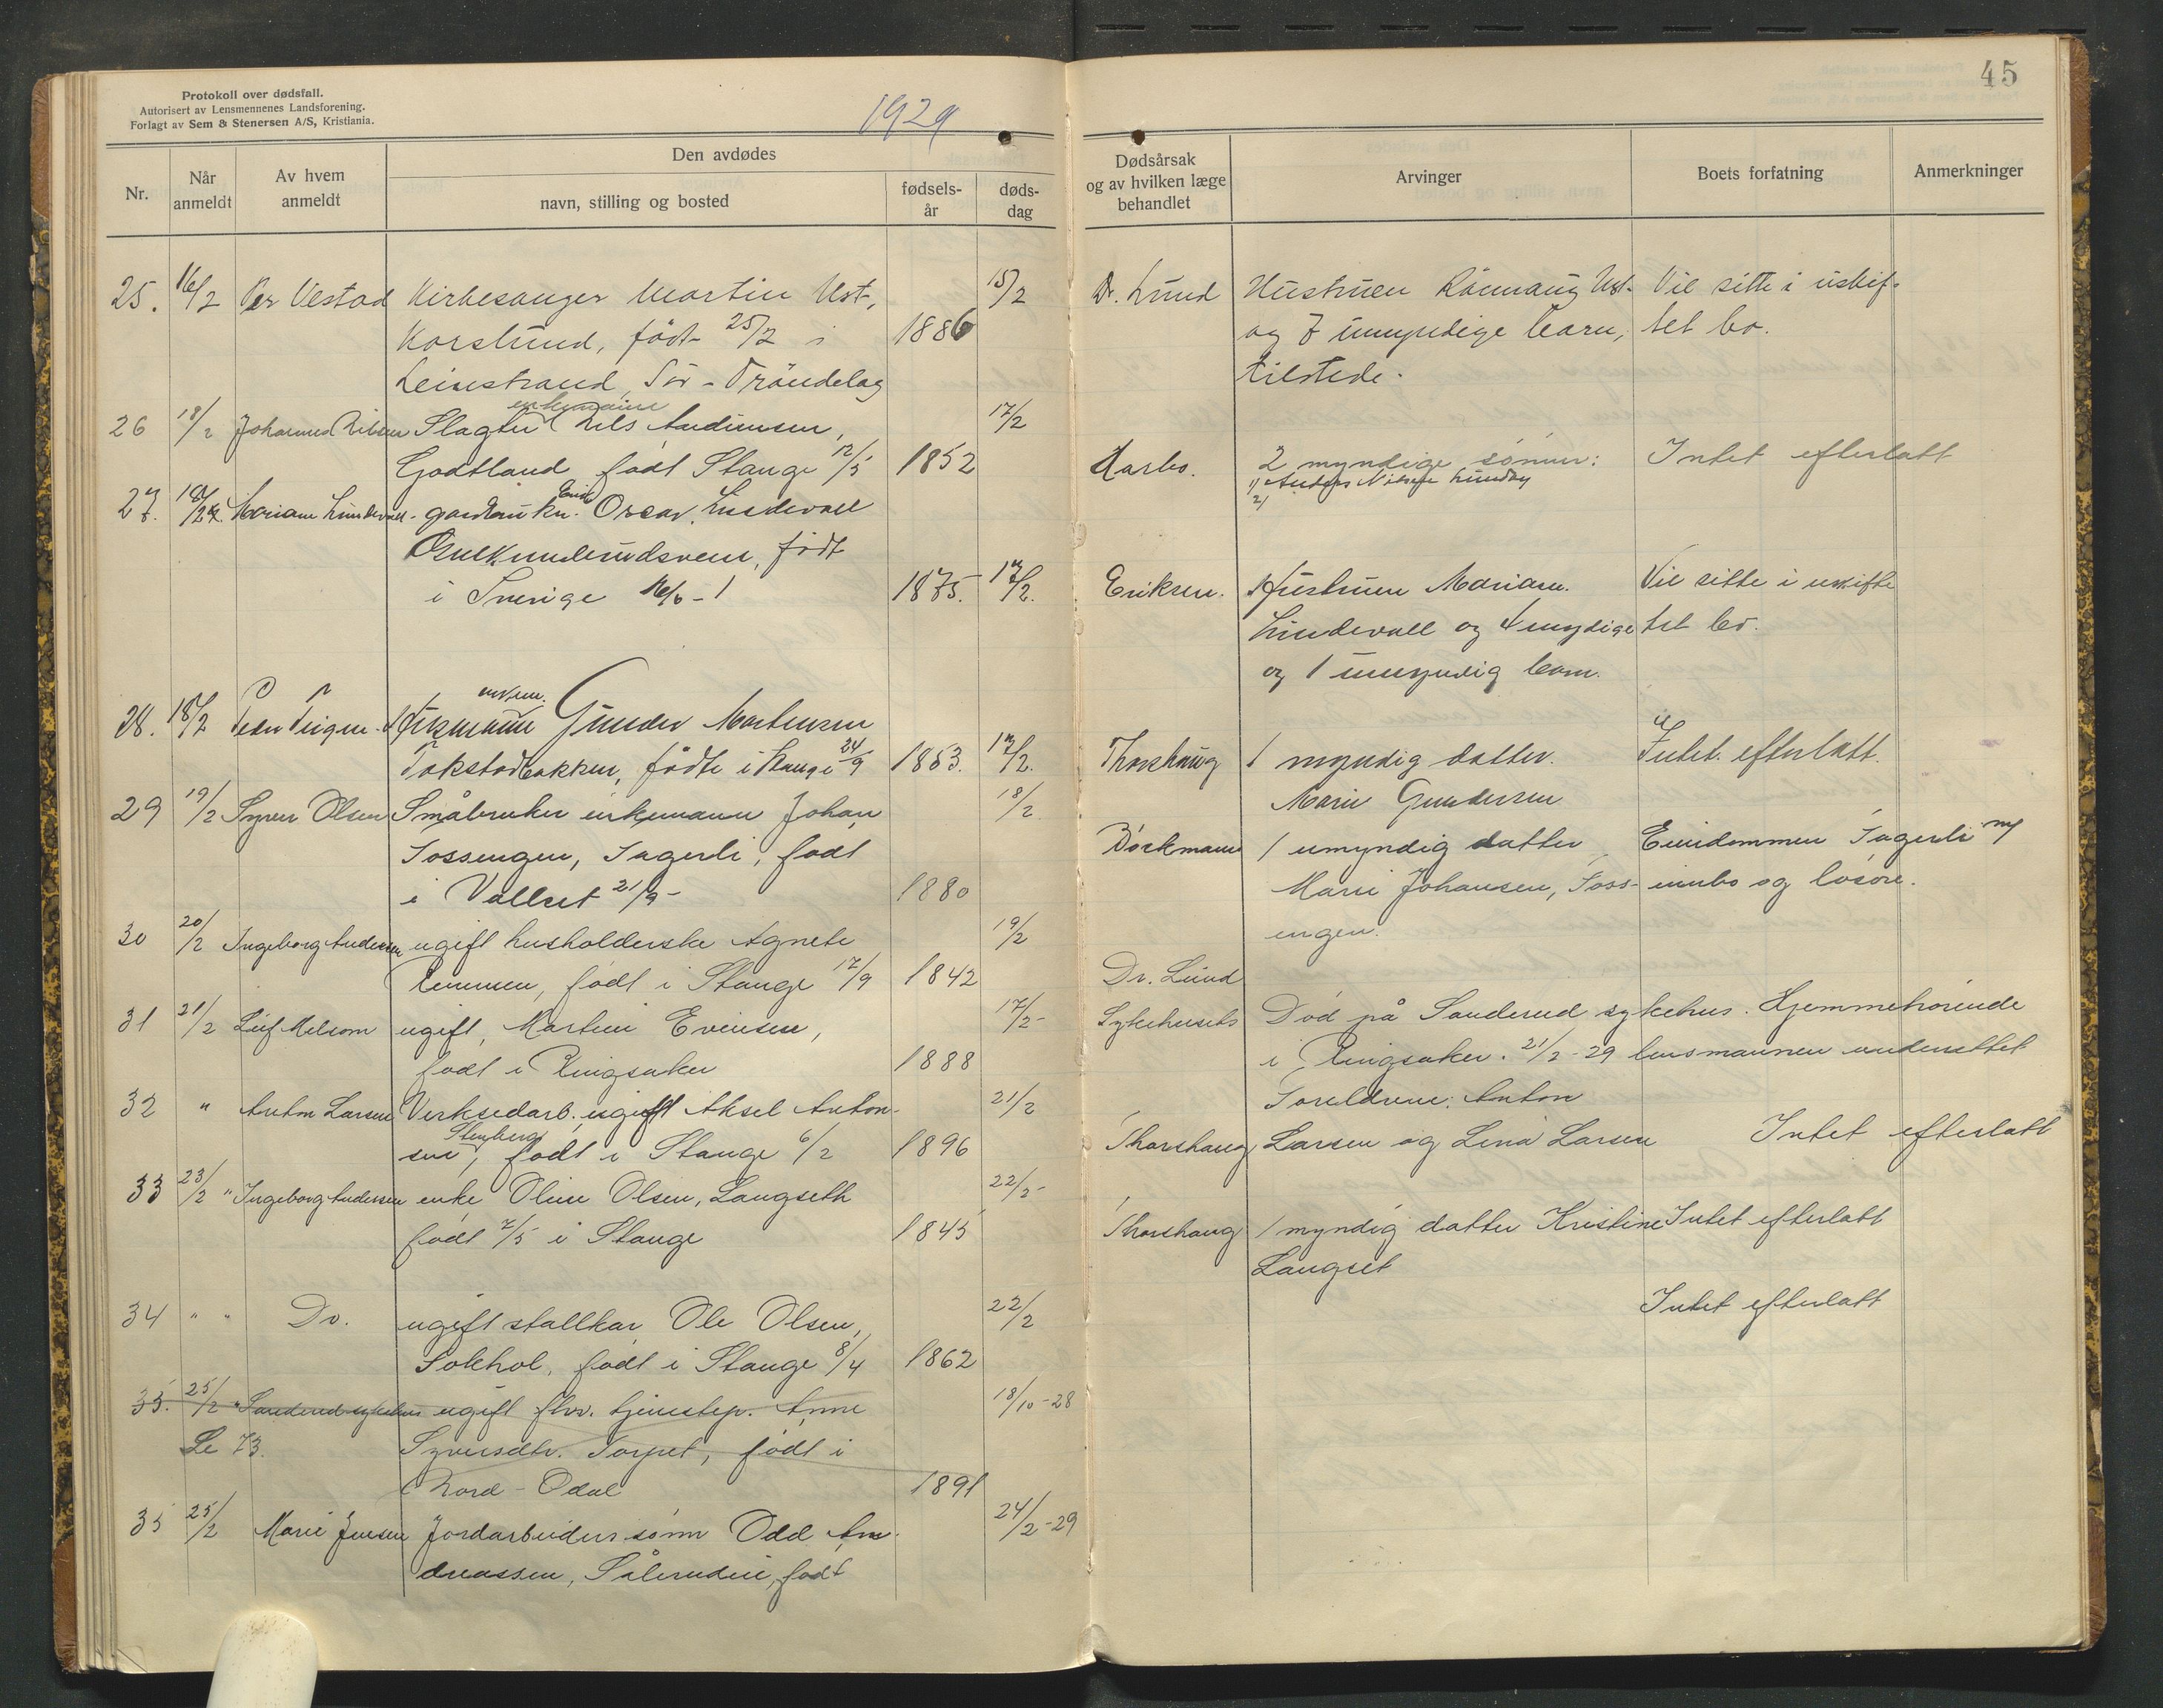 Protokoll over dødsfall.
Autorisert av Lensmennenes Landsforening.
Forlagt av Sem & Stenersen A/S, Kristiania.
1929
Nr.
Når anmeldt
Av hvem anmeldt
Den avdødes
navn, stilling og bosted
fødsels-år
døds-dag
25. 16/2 Per Vestad Kirkesanger Martin Ust- 15/2
Korslund, født 25/2 i 1886
Leinstrand, Sør-Trøndelag
enkemann
26 18/2 Johannes Nilsen Slagter Nils Andersen, 17/2
Godtland født Stange 12/5 1852
27. 18/2 Mariane Lindevall gardbrukn. Oscar Lindevall
født
i Sverige 16/6 - 1 1875. 17/2.
28. 18/2 Peder Gunder Martinsen
Tokstadbakken, født i Stange 24/9 1853. 17/2.
29 19/2 Syver Olsen Småbruker enkemann Johan 18/2
Fossengen, Fagerli, født
i Vallset 21/9 - 1880
30 20/2 Ingeborg Andersen ugift husholderske Agnete 19/2
født i Stange 17/9 1842
31 21/2 Leif Melsom ugift, Martin Evensen, 17/2-
født i Ringsaker 1888
32 " Anton Larsen Verksedarb. ugift Aksel Anton- 21/2
Stenberg
sen, født i Stange 6/2 1896
33 23/2 " Ingeborg Andersen enke Oline Olsen, Langseth 22/2-
født 7/5 i Stange 1845
34 " " Do. ugift stallkar Ole Olsen, 22/2
født i Stange 8/4 1862
35. 25/2 " Sanderud sykehus ugift fhv. tjenestep. Anne 18/10-28
Se 73. Syversdtr. Torpet, født i
Nord-Odal 1891
35 25/2 Marie Jensen Jordarbeiders sønn Odd An- 24/2-29
dreassen, født
45
Dødsårsak
og av hvilken læge
behandlet
Arvinger
Boets forfatning
Anmerkninger
Dr. Lund Hustruen Rønnaug Ust- Vil sitte i uskif-
og 7 umyndige barn, tet bo.
tilstede.
Aarbo. 2 myndige sønner: Intet efterlatt
1) Anders Nilsen
2)
Eriksen. Hustruen Mariane Vil sitte i uskifte
Lindevall og 4 myndige tet bo.
og 1 umyndig barn.
Thorshaug 1 myndig datter. Intet efterlatt.
Marie Gundersen
Børkmann 1 umyndig datter, Eiendommen Fagerli m/
Marie Johansen, Foss- innbo og løsøre.
engen.
Dr. Lund
Sykehusets Død på Sanderud sykehus. Hjemmehørende
i Ringsaker. 21/2-29 lensmannen underrettet
Foreldrene: Anton
Thorshaug Larsen og Lina Larsen Intet efterlatt
Thorshaug 1 myndig datter Kristine Intet efterlatt
Langset
Intet efterlatt